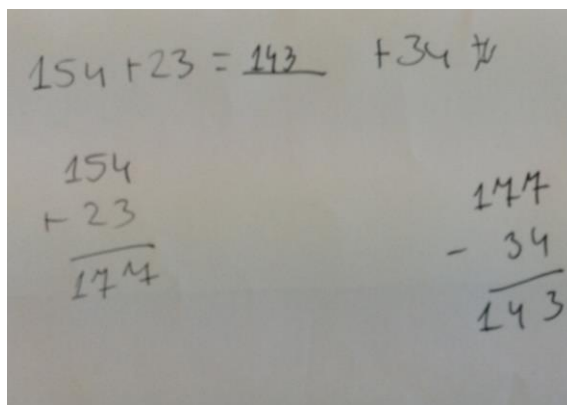 154 + 23 = 143 + 34
154
+ 23
177
177
- 34
143